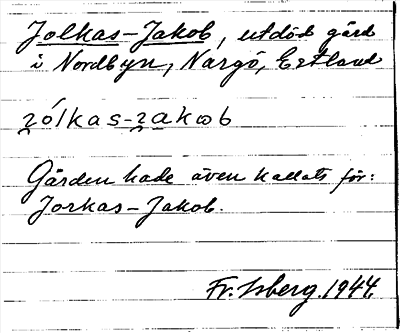 Jolkas-Jakob, utdöd gård
i Nordbyn, Nargö, Estland
ʒólkas-ʒakωb
Gården hade även kallats för:
Jorkas-Jakob.
Fr. Isberg. 1944.